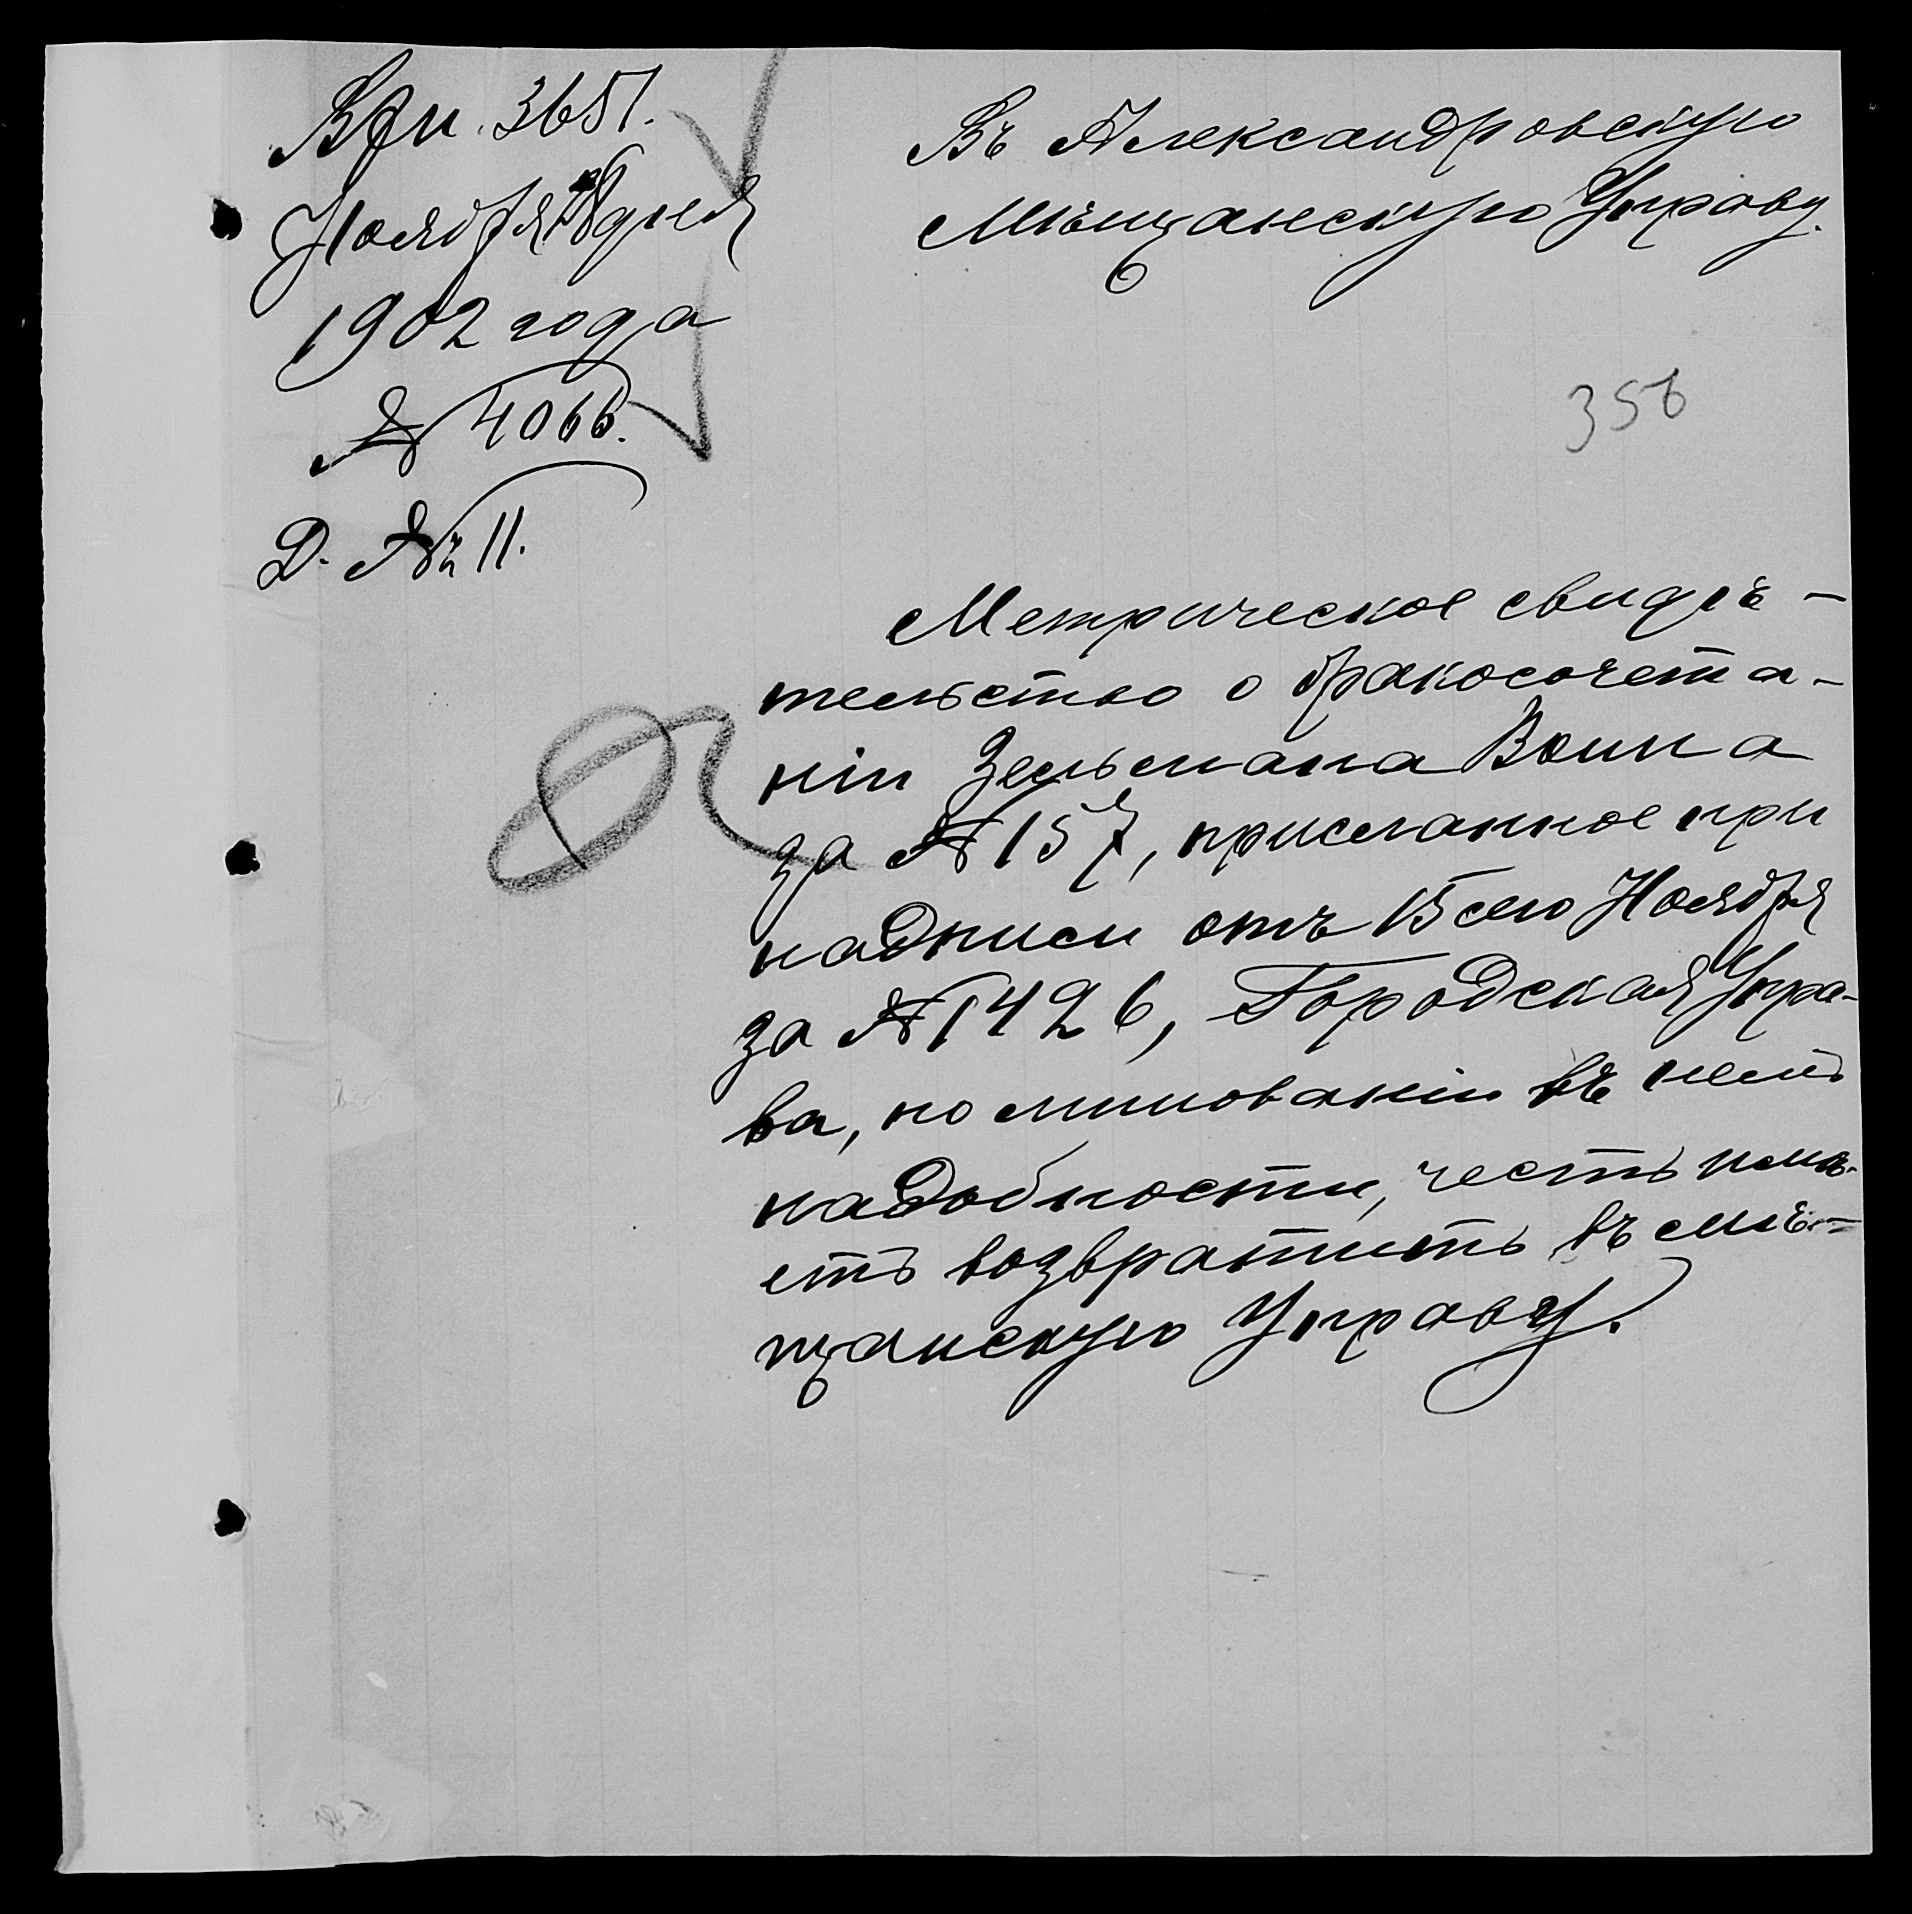 Вхм. 3651.
Ноября 18 дня
1902 года
№ 4066.
Д. № 11.
Въ Александровскую
Мѣщанскую Управу.
356
Метрическое свидѣ-
тельство о бракосочета-
ніи Зельмана Воина
за № 157, присланное при
надписи отъ 15 сего Ноября
за № 1426, Городская Упра-
ва, по минованіи въ немъ
надобности, честь имѣ-
етъ возвратить въ мѣ-
щанскую Управу.